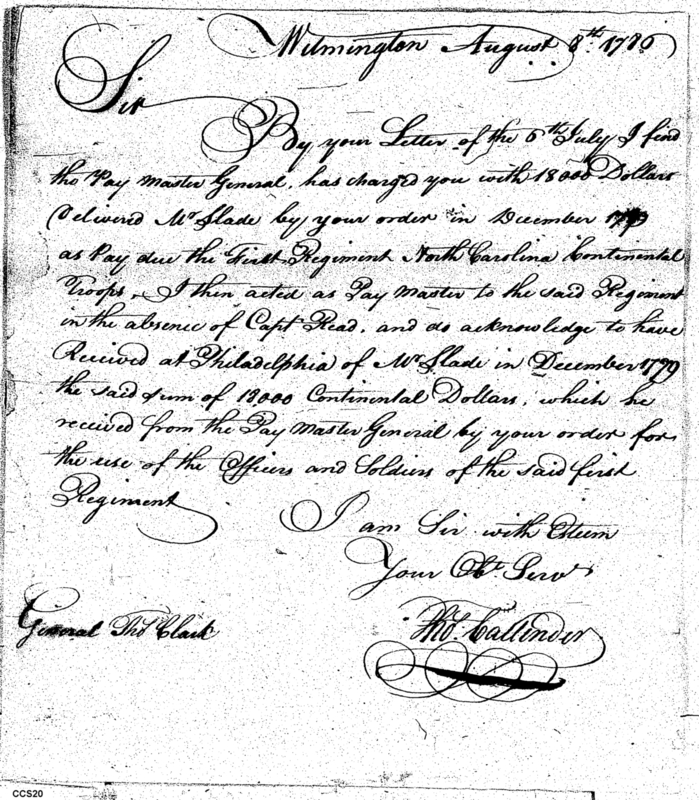 Wilmington August 8th. 1786
Sir
By your Letter of the 6th July I find
the Pay Master General, has charged you with 18000 Dollars
Delivered Mr Slade by your order in December 1779
as Pay due the First Regiment North Carolina Continental
Troops, I then acted as Pay Master to the said Regiment
in the absence of Capt Read, and do acknowledge to have
Received at Philadelphia of Mr Slade in December 1779
the said sum of 18000 Continental Dollars, which he
received from the Pay Master General by your order for
the use of the Officers and Soldiers of the said first
Regiment
I am Sir with Esteem
Your Obt. Servt
General Thos Clark
Thos. Callender
CCS20